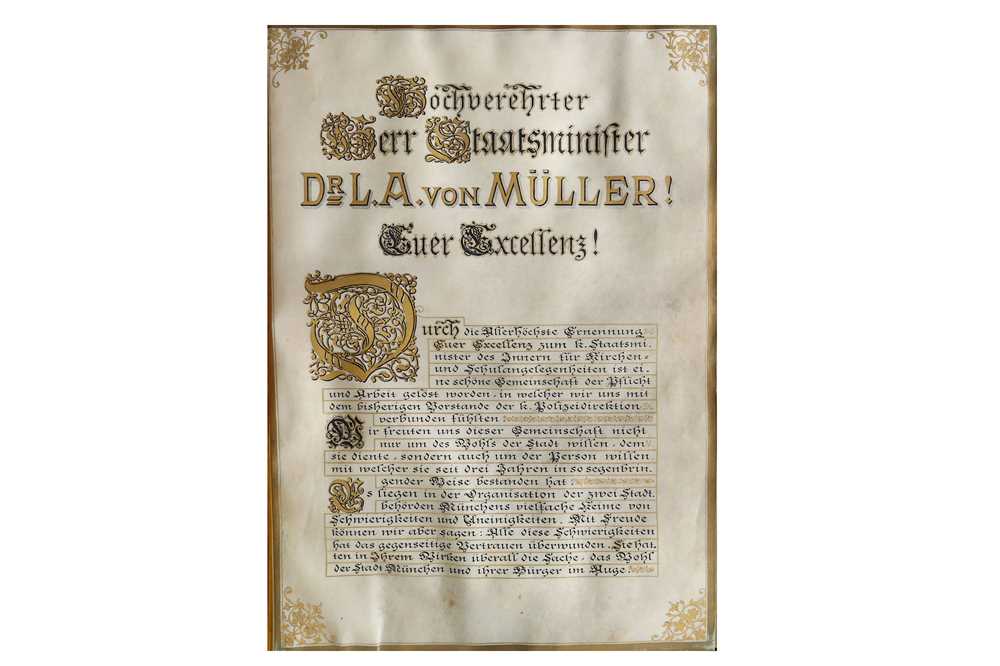 Hochverehrter
Herr Staatsminister
DR. L. A. VON MÜLLER!
Euer Excellenz!
Durch die Allerhöchste Ernennung
Euer Excellenz zum k. Staatsmi-
nister des Innern für Kirchen-
und Schulangelegenheiten ist ei-
ne schöne Gemeinschaft der Pflicht
und Arbeit gelöst worden, in welcher wir uns mit
dem bisherigen Vorstande der k. Polizeidirektion
verbunden fühlten.
Wir freuten uns dieser Gemeinschaft nicht
nur um des Wohls der Stadt willen, dem
sie diente, sondern auch um der Person willen
mit welcher sie seit drei Jahren in so segenbrin-
gender Weise bestanden hat.
Es liegen in der Organisation der zwei Stadt-
behörden Münchens vielfache Keime von
Schwierigkeiten und Uneinigkeiten. Mit Freude
können wir aber sagen: Alle diese Schwierigkeiten
hat das gegenseitige Vertrauen überwunden. Sie hat-
ten in Ihrem Wirken überall die Sache, das Wohl
der Stadt München und ihrer Bürger im Auge.